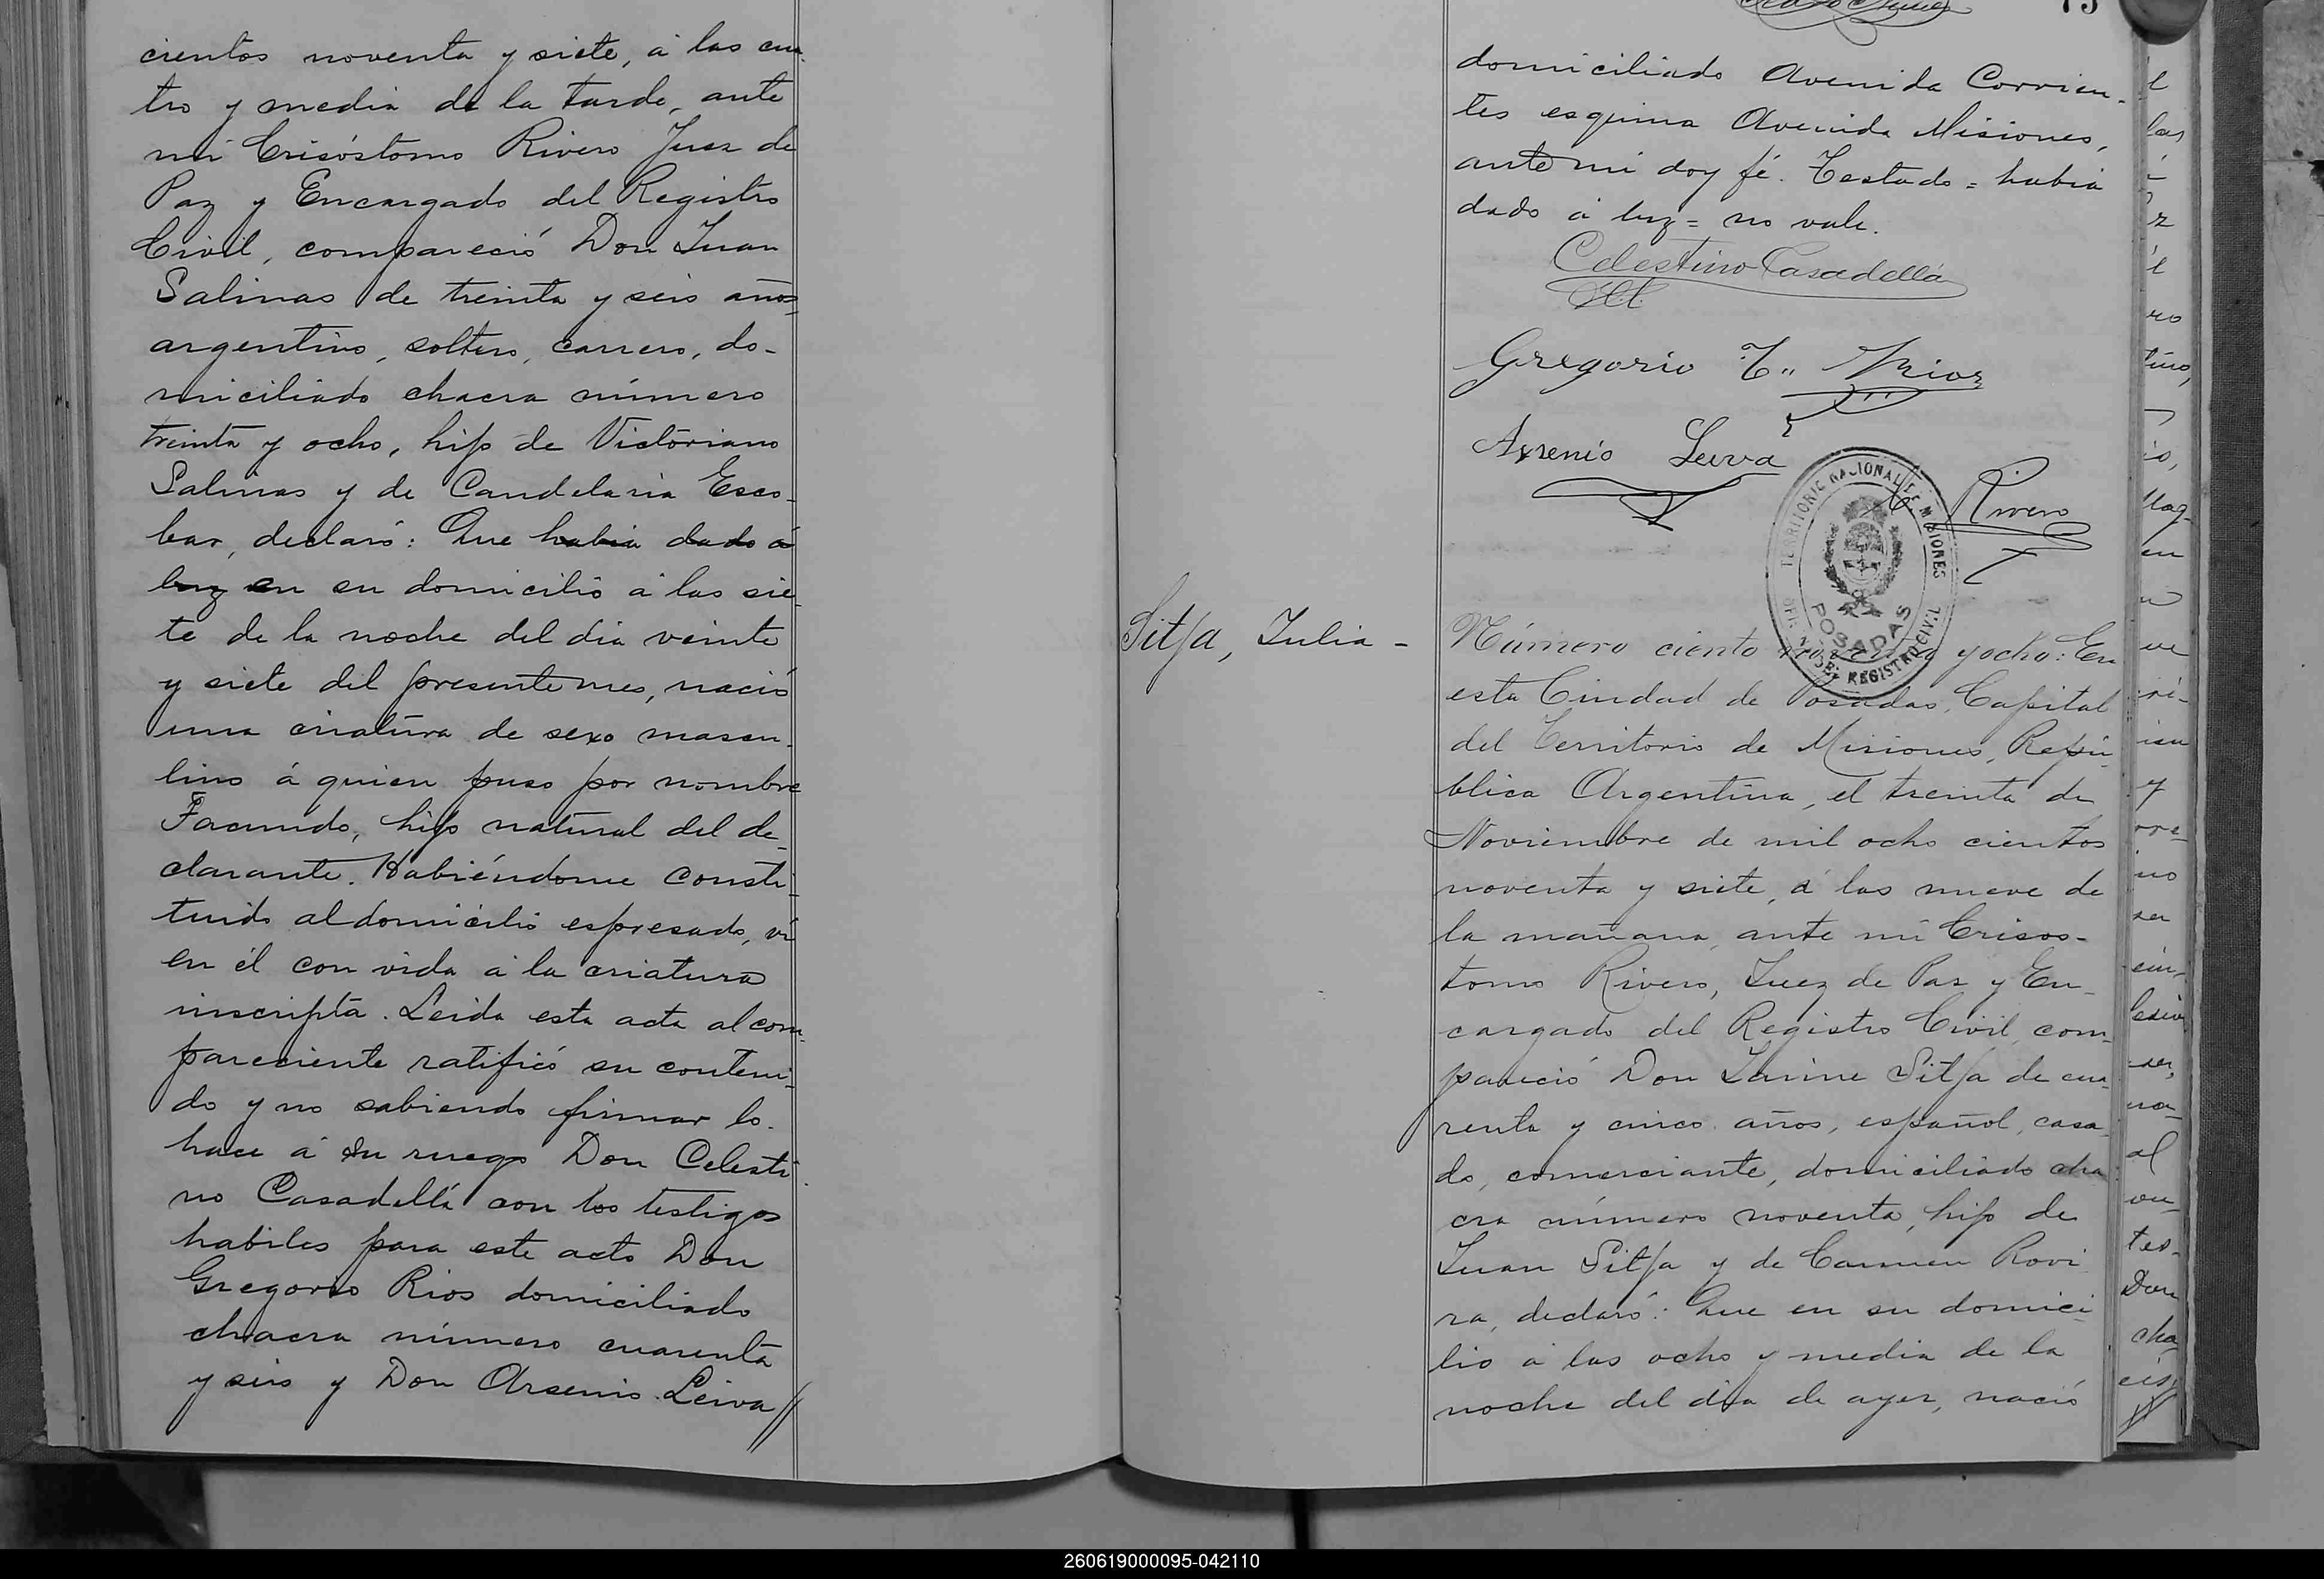 cientos noventa y siete, á las cua-
tro y media de la tarde, ante
mí Crisóstomo Rivero Juez de
Paz y Encargado del Registro
Civil, compareció Don Juan
Salinas de treinta y seis años,
argentino, soltero, carrero, do-
miciliado chacra número
treinta y ocho, hijo de Victoriano
Salinas y de Candelaria Esco-
bar, declaró: Que habia dado á
luz en su domicilio á las sie-
te de la noche del dia veinte
y siete del presente mes, nació
una criatura de sexo mascu-
lino á quien puso por nombre
Facundo, hijo natural del de-
clarante. Habiéndome consti-
tuido al domicilio espresado, ví
en él con vida á la criatura
inscripta. Leida esta acta al com-
pareciente ratificó su conteni-
do y no sabiendo firmar lo
hace á su ruego Don Celesti-
no Casadellá con los testigos
habiles para este acto Don
Gregorio Rios domiciliado
chacra número cuarenta
y seis y Don Arsenio Leiva//
75
domiciliado Avenida Corrien-
tes esquina Avenida Misiones,
ante mi doy fé. Testado = habia
dado á luz = no vale.
Celestino Casadellá
Gregorio T. Rios
Arsenio Leiva
C. Rivero
TERRITORIO NACIONAL DE MISIONES
POSADAS
OFIC. DEL REGISTRO CIVIL
Sitja, Julia -
Número ciento noventa y ocho: En
esta Ciudad de Posadas, Capital
del Territorio de Misiones, Repú-
blica Argentina, el treinta de
Noviembre de mil ocho cientos
noventa y siete, á las nueve de
la mañana, ante mí Crisos-
tomo Rivero, Juez de Paz y En-
cargado del Registro Civil, com-
pareció Don Jaime Sitja de cua-
renta y cinco años, español, casa-
do, comerciante, domiciliado cha-
cra número noventa, hijo de
Juan Sitja y de Carmen Rovi-
ra, declaró: Que en su domici-
lio á las ocho y media de la
noche del dia de ayer, nació
260619000095-042110